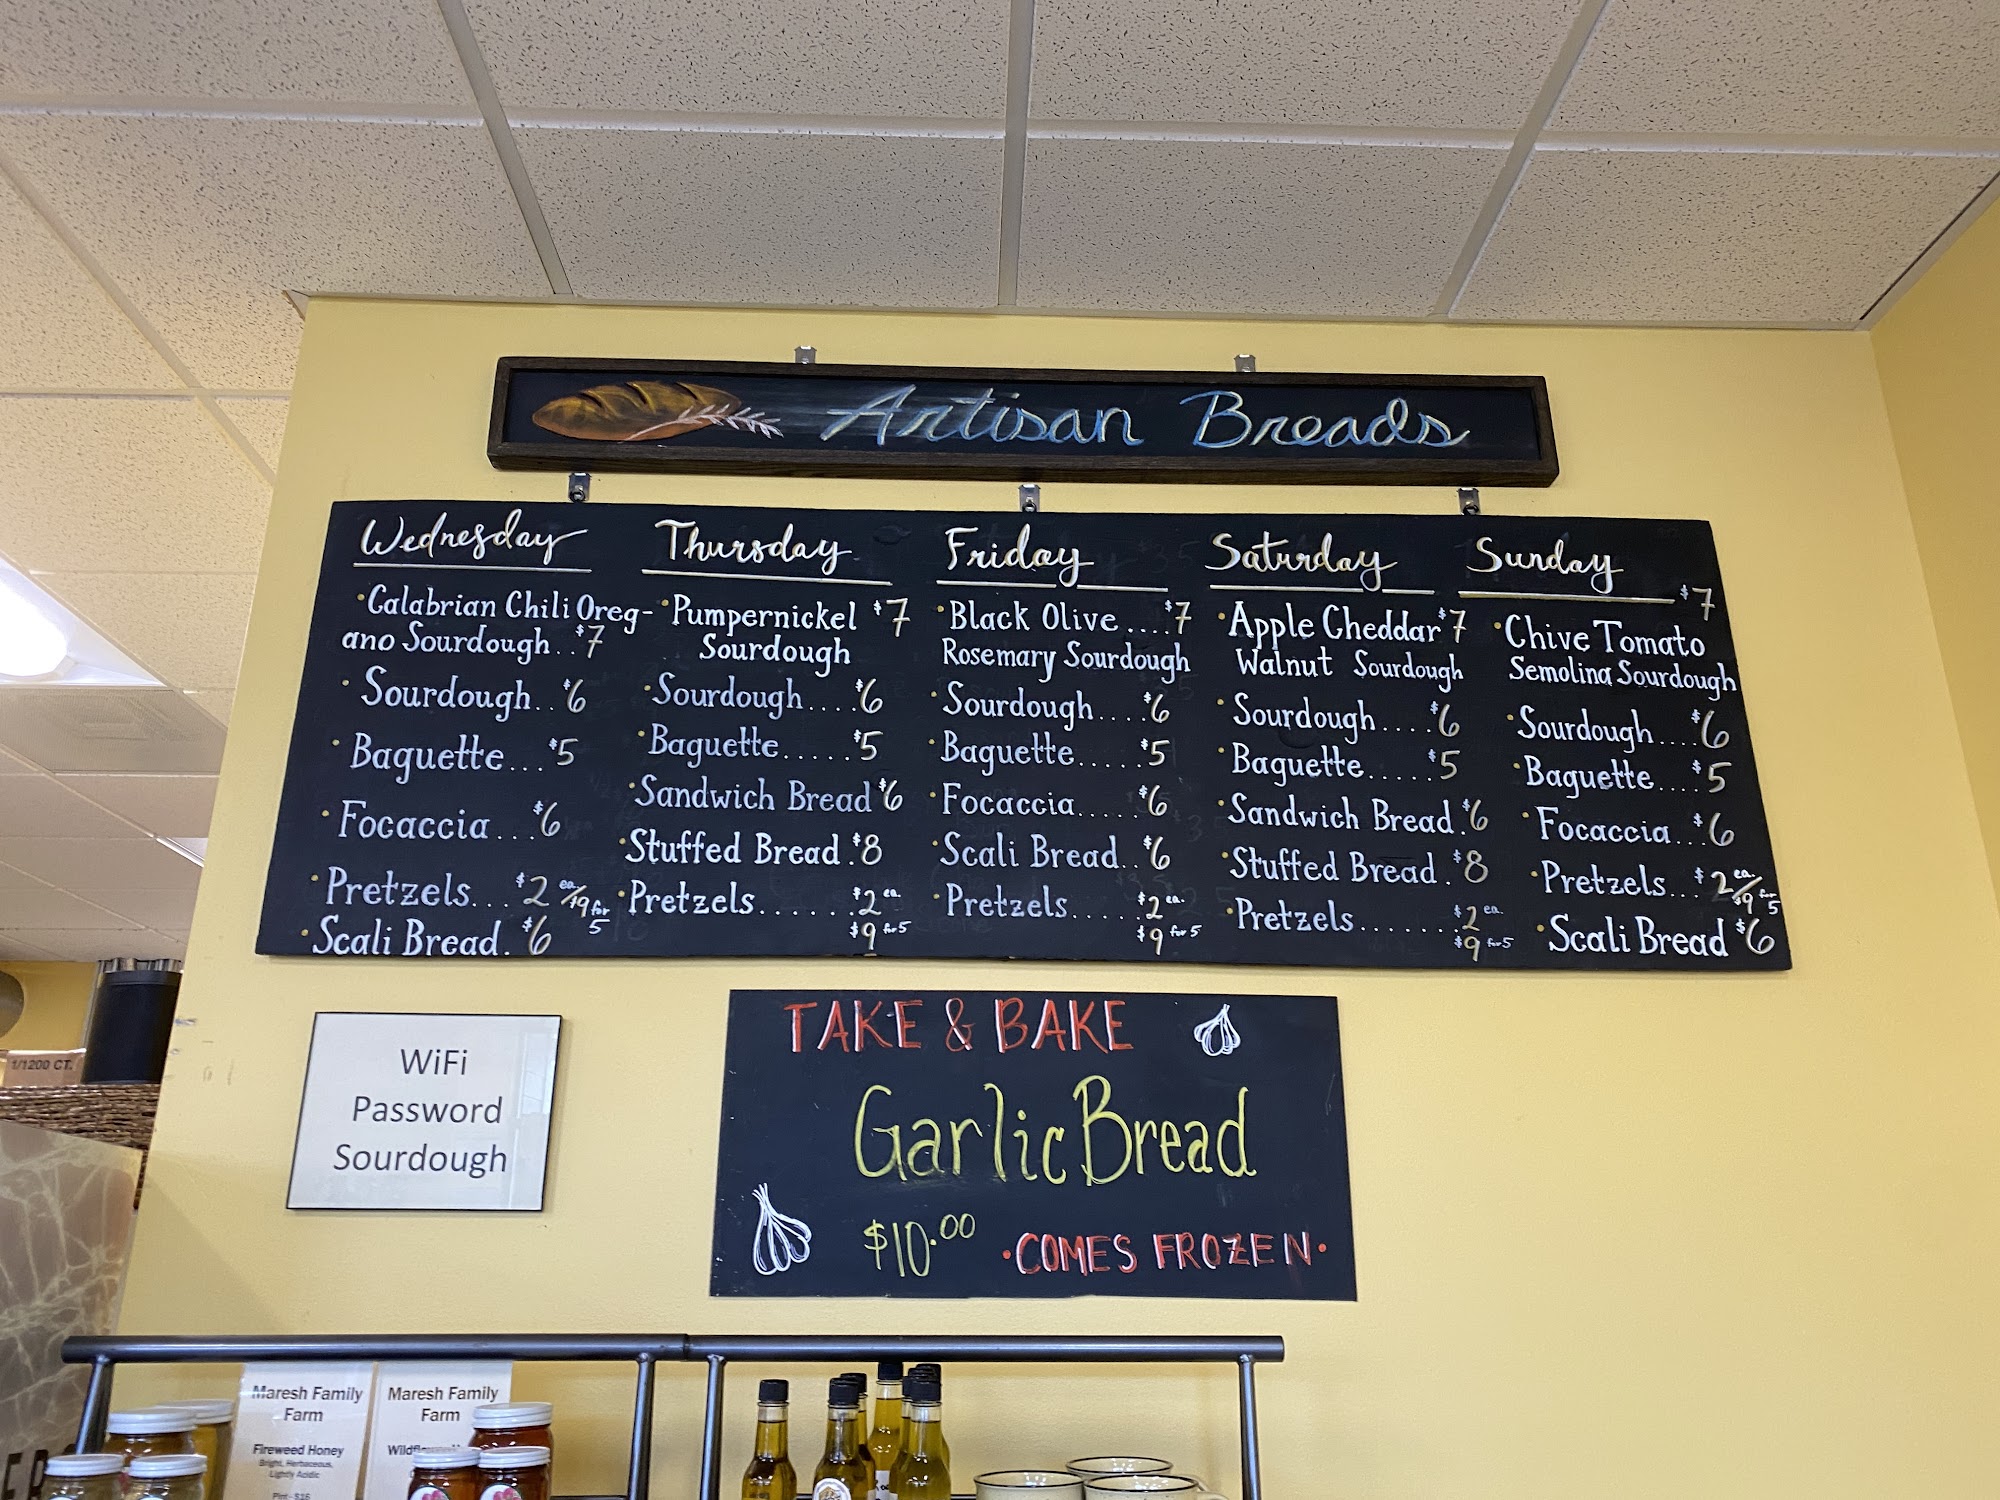 Artisan Breads
Wednesday
• Calabrian Chili Oreg-
ano Sourdough..$7
• Sourdough..$6
• Baguette...$5
• Focaccia...$6
• Pretzels...$2 ea./$9 for 5
• Scali Bread.$6
Thursday
• Pumpernickel $7
Sourdough
• Sourdough....$6
• Baguette.....$5
• Sandwich Bread $6
• Stuffed Bread.$8
• Pretzels......$2 ea.
$9 for 5
Friday
• Black Olive....$7
Rosemary Sourdough
• Sourdough....$6
• Baguette....$5
• Focaccia....$6
• Scali Bread..$6
• Pretzels.....$2 ea.
$9 for 5
Saturday
• Apple Cheddar $7
Walnut Sourdough
• Sourdough....$6
• Baguette.....$5
• Sandwich Bread.$6
• Stuffed Bread.$8
• Pretzels.......$2 ea.
$9 for 5
Sunday
$7
• Chive Tomato
Semolina Sourdough
• Sourdough....$6
• Baguette....$5
• Focaccia...$6
• Pretzels..$2 ea./$9 for 5
• Scali Bread $6
WiFi
Password
Sourdough
TAKE & BAKE
Garlic Bread
$10.00 • COMES FROZEN •
1/1200 CT.
Maresh Family
Farm
Fireweed Honey
Bright, Herbaceous,
Lightly Acidic
Pint - $16
Maresh Family
Farm